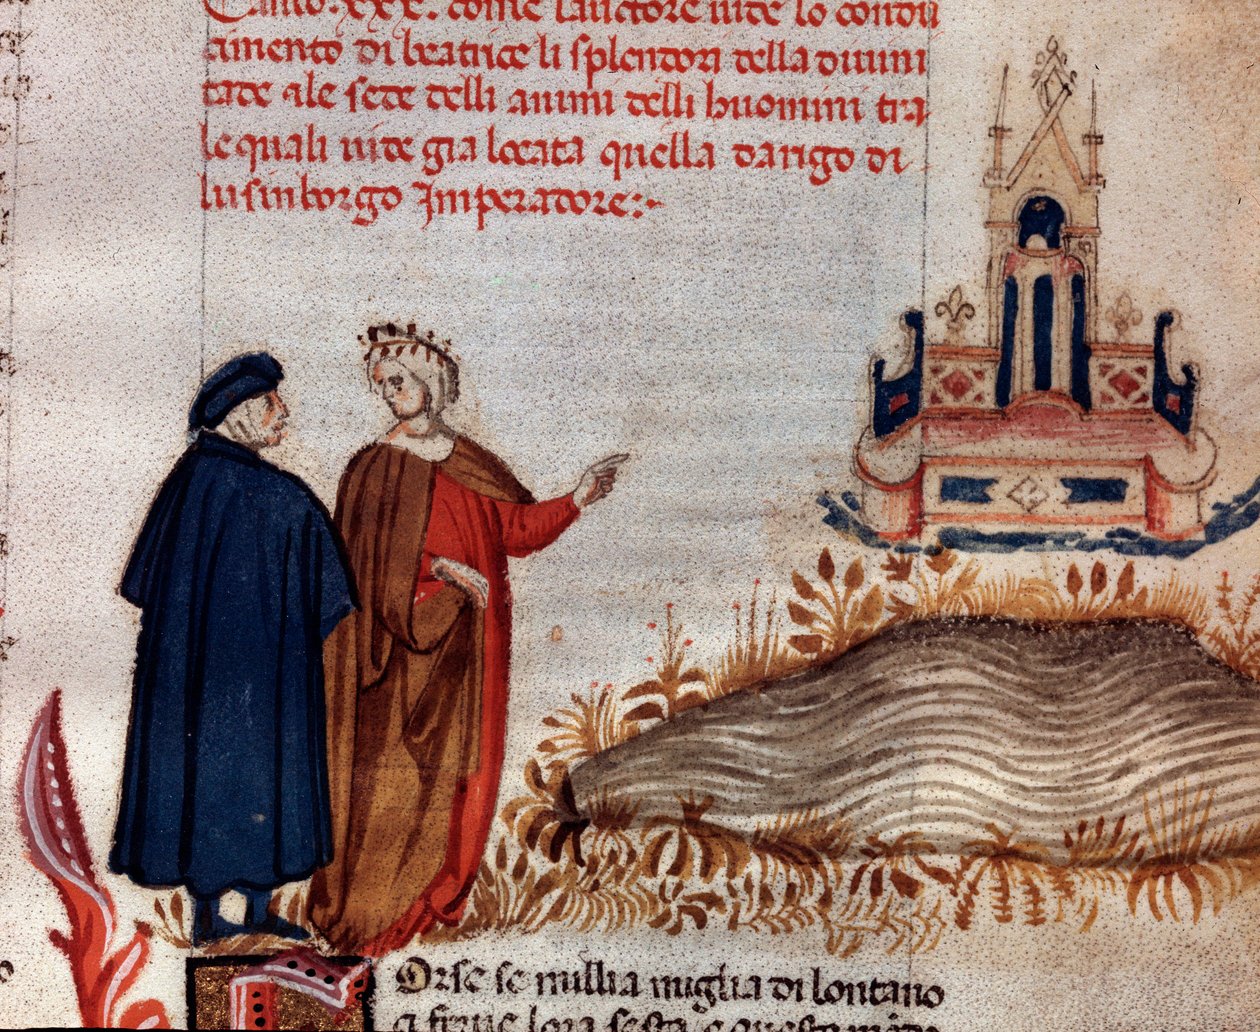 Canto .xxx. come lauctore vide lo condu
cimento di beatrice li splendori della divini
tade ale sede delli animi delli huomini tra
le quali vide gia locata quella darigo di
lusinborgo Imperadore:·
Orse se millia miglia di lontano